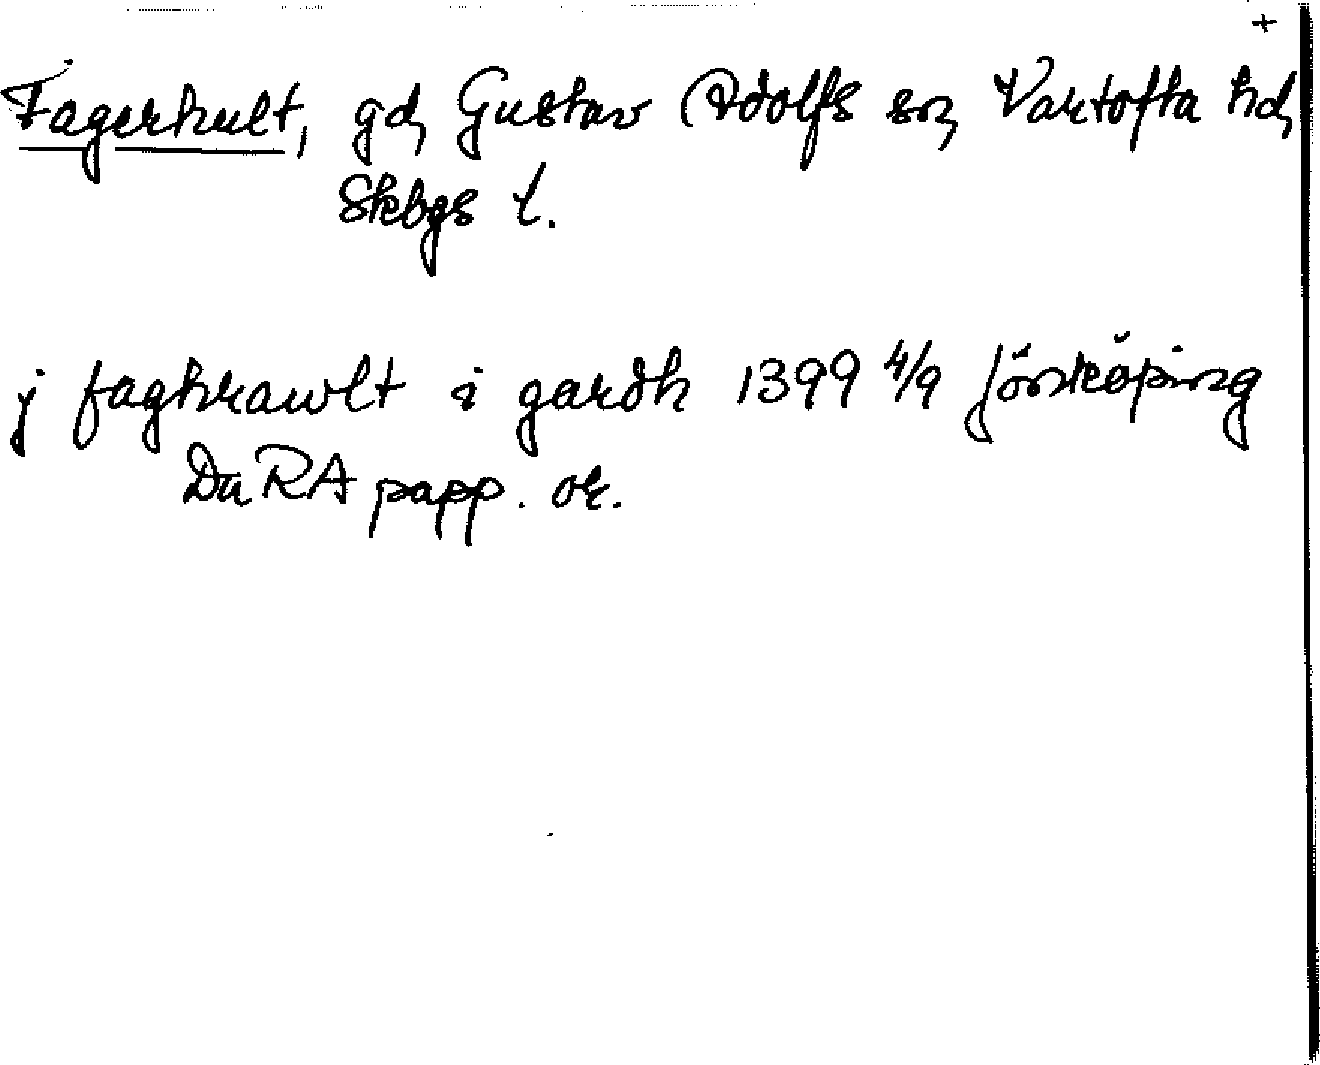 +
Fagerhult, gd, Gustav Adolfs sn, Vartofta hd,
Skbgs l.
j faghrawlt i gardh 1399 4/9 Jönköping
Du RA papp. or.